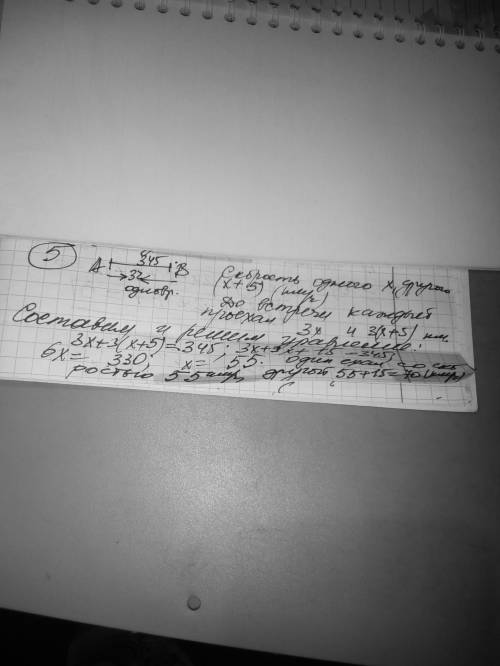 5
345
A 3ч B
одновр.
Скорость одного x, другого
(x+5) (км/ч)
До встречи каждый
проехал 3x и 3(x+5) км.
Составим и решим уравнение:
3x+3(x+5)=345; 3x+3x+15=345;
6x=330; x=55. один ехал со ско
ростью 55 км/ч другой 55+15=70 (км/ч)